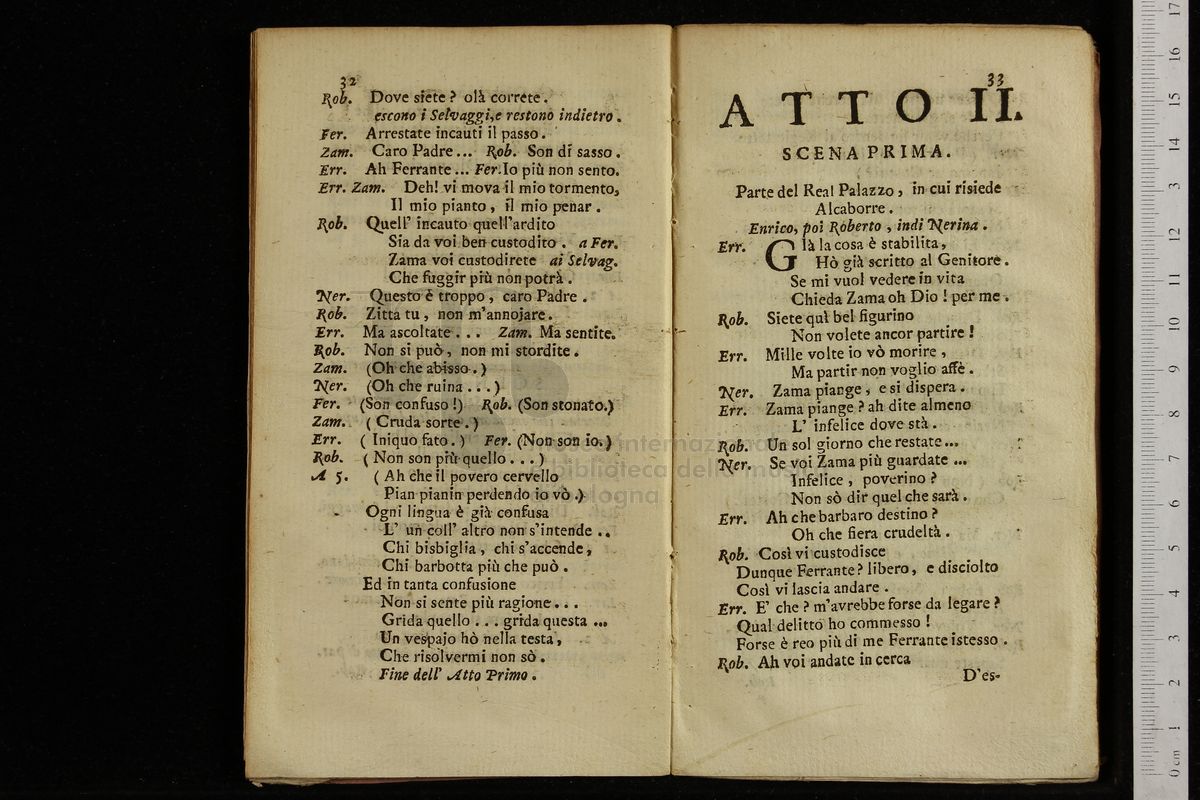 32
Rob. Dove siete ? olà correte.
escono i Selvaggi,e restono indietro .
Fer. Arrestate incauti il passo.
Zam. Caro Padre ... Rob. Son di sasso .
Err. Ah Ferrante ... Fer.Io più non sento.
Err. Zam. Deh! vi mova il mio tormento,
Il mio pianto , il mio penar .
Rob. Quell' incauto quell'ardito
Sia da voi ben custodito . a Fer.
Zama voi custodirete ai Selvag.
Che fuggir più non potrà .
Ner. Questo è troppo , caro Padre .
Rob. Zitta tu , non m'annojare.
Err. Ma ascoltate . . . Zam. Ma sentite.
Rob. Non si può , non mi stordite .
Zam. (Oh che abisso . )
Ner. (Oh che ruina . . . )
Fer. (Son confuso !) Rob. (Son stonato.)
Zam. ( Cruda sorte . )
Err. ( Iniquo fato . ) Fer. (Non son io. )
Rob. ( Non son più quello . . . )
A 5. ( Ah che il povero cervello
Pian pianin perdendo io vò .)
Ogni lingua è già confusa
L' un coll' altro non s'intende ..
Chi bisbiglia , chi s'accende ,
Chi barbotta più che può .
Ed in tanta confusione
Non si sente più ragione . . .
Grida quello . . . grida questa ...
Un vespajo hò nella testa ,
Che risolvermi non sò .
Fine dell' Atto Primo .
33
ATTO II.
SCENA PRIMA.
Parte del Real Palazzo , in cui risiede
Alcaborre .
Enrico, poi Roberto , indi Nerina .
Err. Già la cosa è stabilita ,
Hò già scritto al Genitore .
Se mi vuol vedere in vita
Chieda Zama oh Dio ! per me .
Rob. Siete quì bel figurino
Non volete ancor partire !
Err. Mille volte io vò morire ,
Ma partir non voglio affè .
Ner. Zama piange , e si dispera .
Err. Zama piange ? ah dite almeno
L' infelice dove stà .
Rob. Un sol giorno che restate ...
Ner. Se voi Zama più guardate ...
Infelice , poverino ?
Non sò dir quel che sarà .
Err. Ah che barbaro destino ?
Oh che fiera crudeltà .
Rob. Così vi custodisce
Dunque Ferrante ? libero , e disciolto
Così vi lascia andare .
Err. E' che ? m'avrebbe forse da legare ?
Qual delitto ho commesso !
Forse è reo più di me Ferrante istesso .
Rob. Ah voi andate in cerca
D'es-